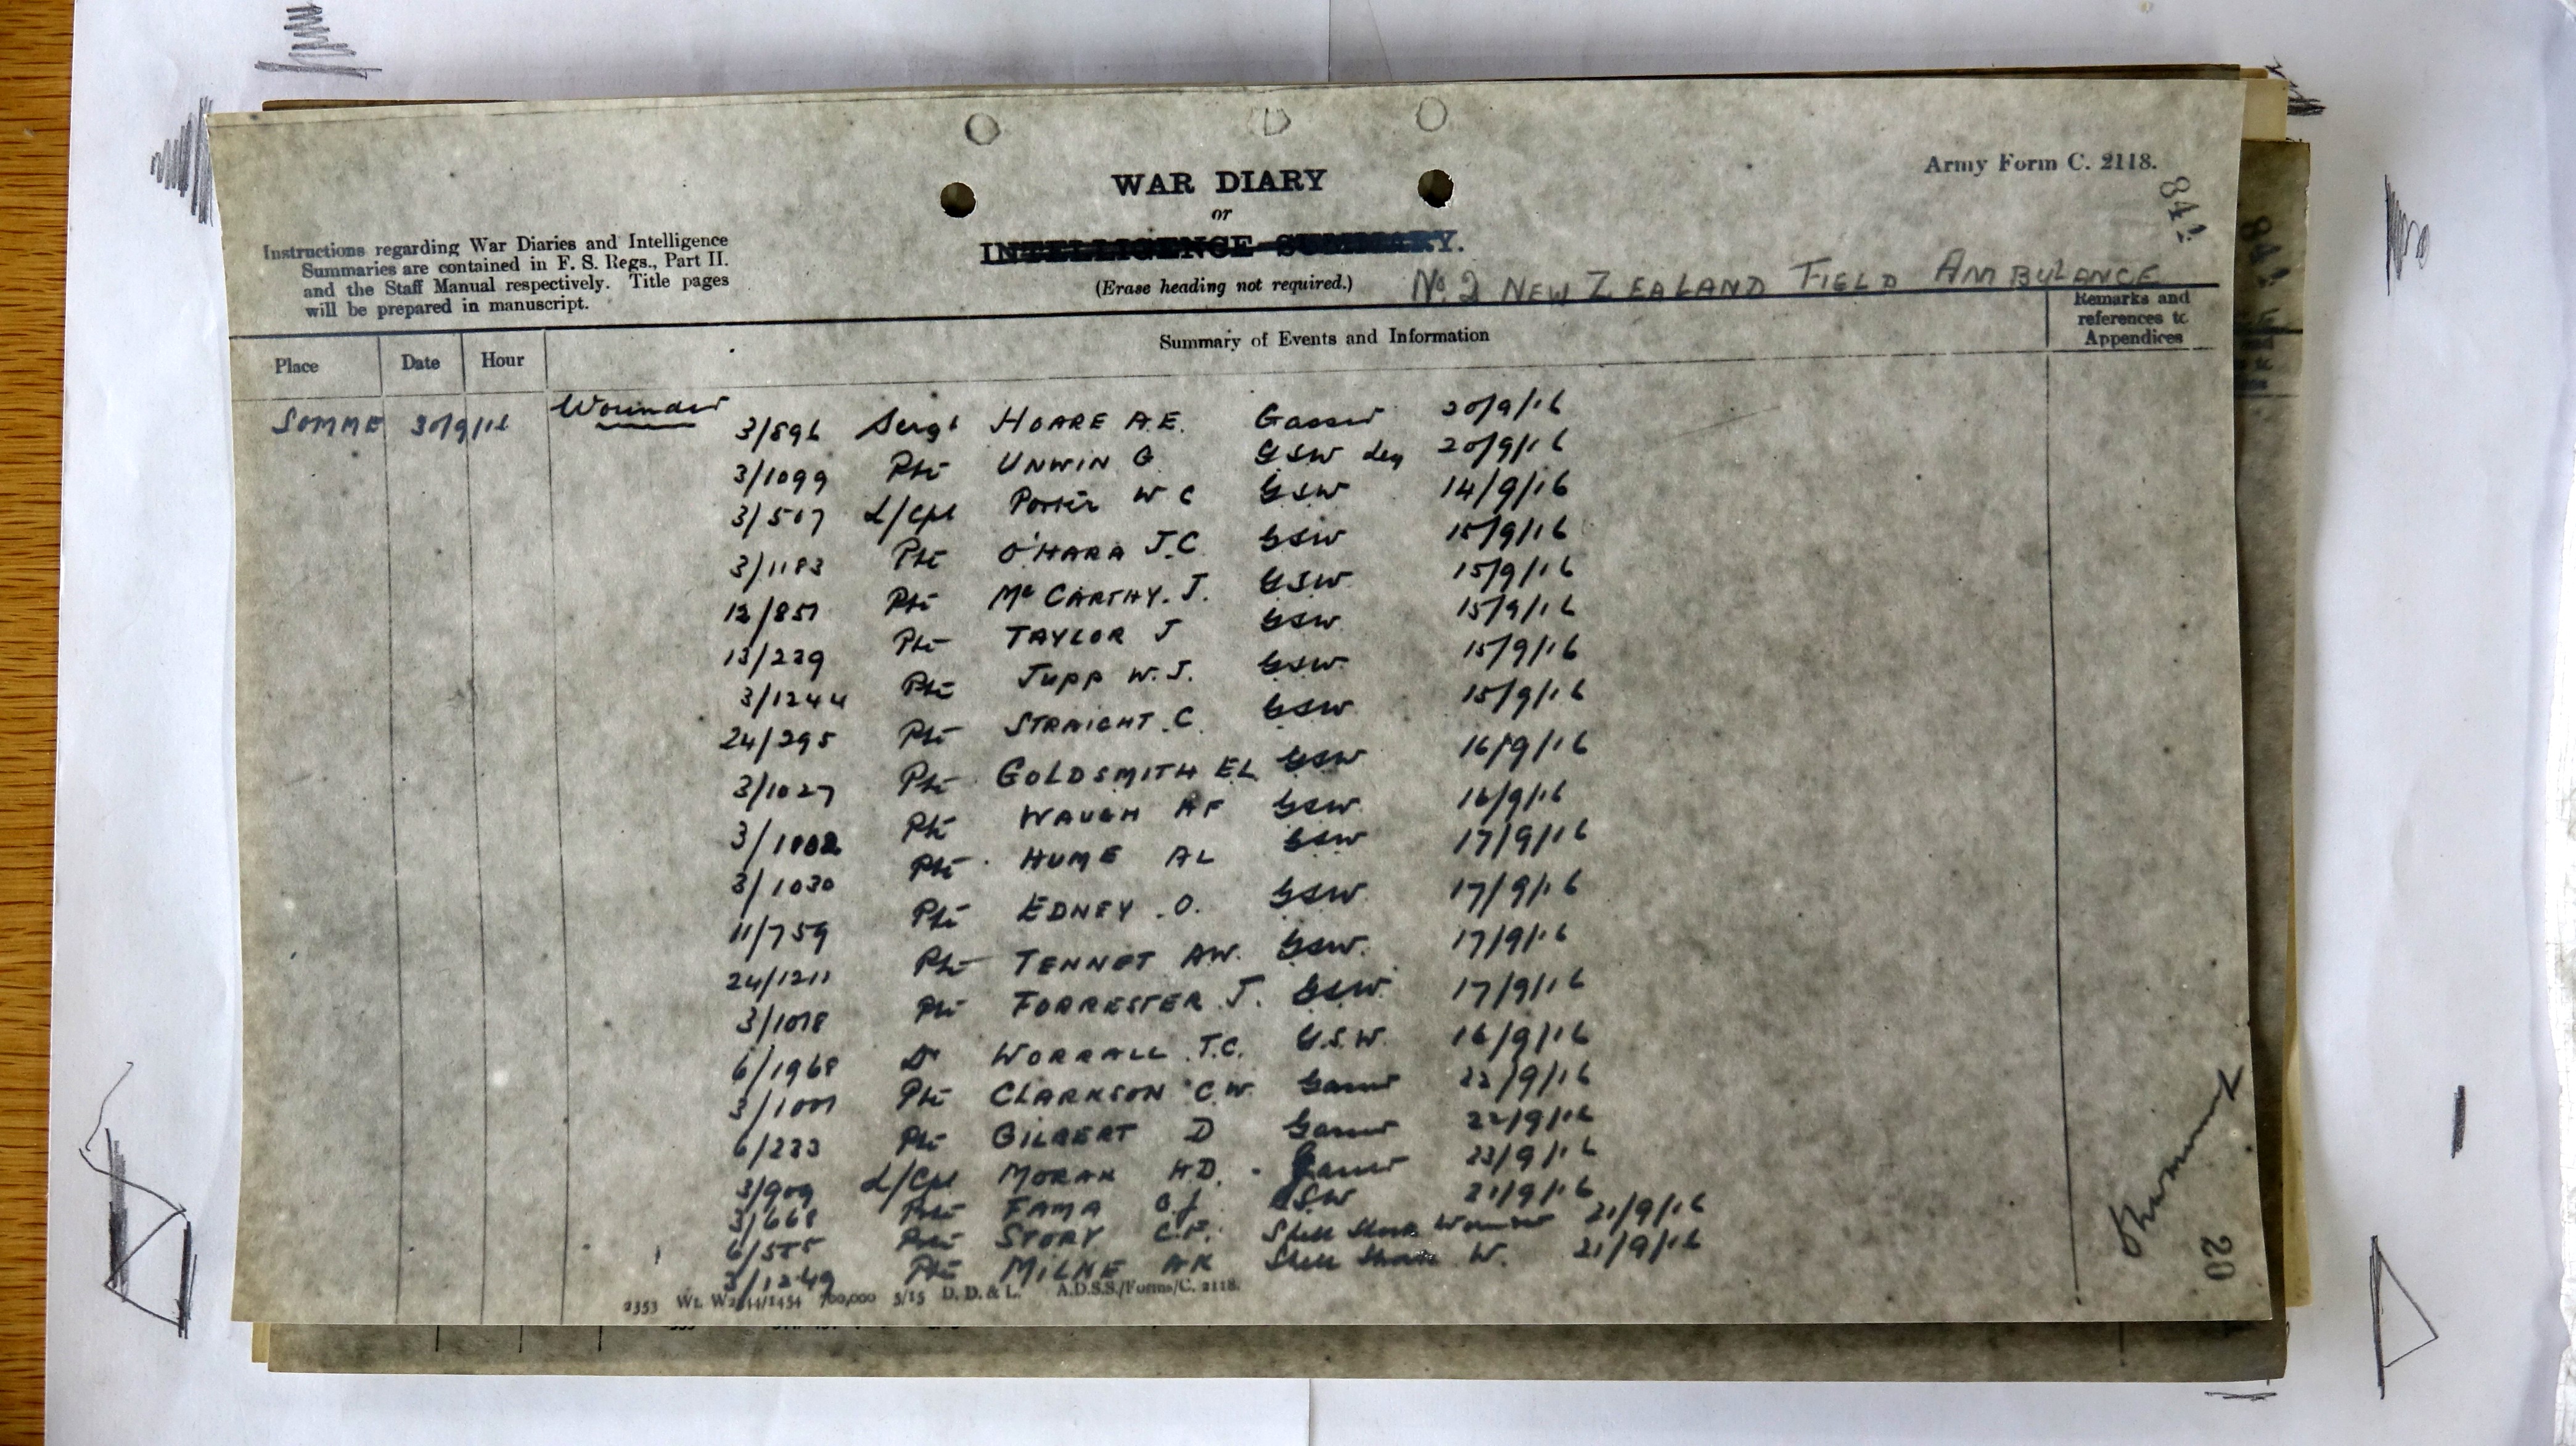 Army Form C. 2118.
WAR DIARY
or
INTELLIGENCE SUMMARY.
(Erase heading not required.)
Instructions regarding War Diaries and Intelligence
Summaries are contained in F. S. Regs., Part II.
and the Staff Manual respectively. Title pages
will be prepared in manuscript.
No. 2 NEW ZEALAND FIELD AMBULANCE
Place Date Hour Summary of Events and Information
Remarks and
references to
Appendices
SOMME 30/9/16 Wounded
3/896 Sergt HOARE A.E. Gassed 20/9/16
3/1099 Pte UNWIN G GSW leg 20/9/16
3/507 L/Cpl Porter W C GSW 14/9/16
3/1183 Pte O'HARA J.C GSW 15/9/16
12/857 Pte McCARTHY. J. GSW 15/9/16
13/239 Pte TAYLOR J GSW 15/9/16
3/1244 Pte Jupp W.J. GSW 15/9/16
24/295 Pte STRAIGHT. C GSW 15/9/16
3/1027 Pte GOLDSMITH EL GSW 16/9/16
Pte WAUGH AF GSW 16/9/16
3/1030 Pte HUME AL GSW 17/9/16
11/759 Pte EDNEY. O. GSW 17/9/16
24/1211 Pte TENNET AW. GSW 17/9/16
3/1018 Pte FORRESTER J. GSW 17/9/16
6/1968 Dr WORRALL .T.C. G.S.W. 16/9/16
Pte CLARKSON C.W. Gassed 22/9/16
6/233 Pte GILBERT D Gassed 22/9/16
3/909 L/Cpl MORAN H.D. Gassed 23/9/16
3/668 Pte FAMA GSW 21/9/16
6/555 Pte STORY C.F. Shell Shock Wounded 21/9/16
3/1249 Pte MILNE AK Shell Shock W. 21/9/16
20
700,000 5/15 D. D. & L. A.D.S.S./Forms/C. 2118.